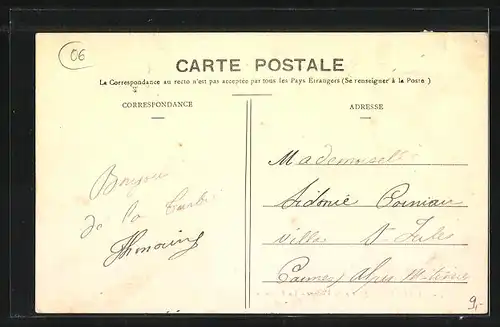 06
CARTE POSTALE
La Correspondance au recto n'est pas acceptée par tous les Pays Etrangers (Se renseigner à la Poste)
CORRESPONDANCE
ADRESSE
Bonjour
de la
Mademoiselle
Sidonie
Villa St Jules
Cannes Alpes M-times
9,-